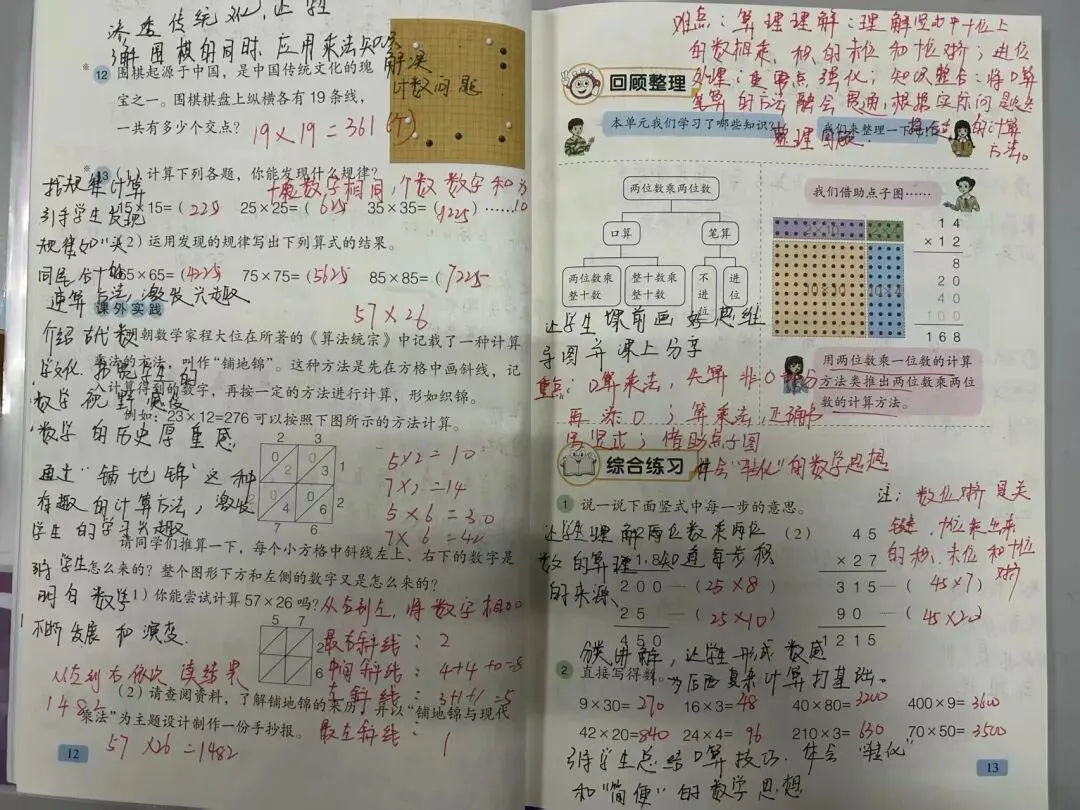 渗透传统文化,让学生
了解围棋的同时,应用乘法知识
解决
计数问题
※ 12 围棋起源于中国,是中国传统文化的瑰
宝之一。围棋棋盘上纵横各有 19 条线,
一共有多少个交点?
19×19=361(个)
※ 13 (1) 计算下列各题,你能发现什么规律?
找规律计算
十位数字相同,个数数字和为10
15×15=(225 25×25=(625 35×35=(1225)……
引导学生发现
(2)运用发现的规律写出下列算式的结果。
规律如"头
同尾合十"的
65×65=(4225 75×75=(5625 85×85=(7225
速算方法,激发兴趣
课外实践
57×26
介绍古代数
明朝数学家程大位在所著的《算法统宗》中记载了一种计算
乘法的方法,叫作“铺地锦”。这种方法是先在方格中画斜线,记
入计算得到的数字,再按一定的方法进行计算,形如织锦。
数学视野,感受
例如:23×12=276 可以按照下图所示的方法计算。
数学的历史厚重感
2 3
0 2 0 3 1
0 4 0 6 2
7 6
5×2=10
7×2=14
5×6=30
7×6=42
通过“铺地锦”这种
有趣的计算方法,激发
学生的学习兴趣
请同学们推算一下,每个小方格中斜线左上、右下的数字是
怎么来的?整个图形下方和左侧的数字又是怎么来的?
引导学生
明白数学
(1)你能尝试计算 57×26 吗?
从右到左,将数字相加
不断发展和演变
5 7
2
6
最右斜线:2
中间斜线:4+4+0=8
左斜线:3+1+1=5
最左斜线:1
从左到右依次读结果
1482
(2)请查阅资料,了解铺地锦的来历,并以“铺地锦与现代
乘法”为主题设计制作一份手抄报。
57×26=1482
12
难点:算理理解:理解竖式中十位上
的数相乘,积的末位和十位对齐;进位
处理:重点强化;知识整合:将口算
笔算的方法融会贯通,根据实际问题选
择合适的计算
方法。
回顾整理
本单元我们学习了哪些知识?
我们来整理一下吧!
整理回顾
两位数乘两位数
口算
笔算
两位数乘
整十数
整十数乘
整十数
不进位
进位
我们借助点子图……
2×10
2×4
10×10
10×4
14
×12
8
20
40
100
168
用两位数乘一位数的计算
方法类推出两位数乘两位
数的计算方法。
让学生课前画好思维
导图并课上分享
重点:口算乘法,先算非0部分
再添0;算乘法,正确书
写竖式;借助点子图
体会“转化”的数学思想
综合练习
1 说一说下面竖式中每一步的意思。
注:数位对齐是关
键,十位乘出来
的积,末位和十位
对齐
让学生理解两位数乘两位
数的算理,知道每步积
的来源
×18
200 (25×8)
25 (25×10)
450
(2) 45
×27
315 (45×7)
90 (45×20)
1215
分类讲解,让学生形成数感
2 直接写得数。
为后面复杂计算打基础。
9×30=270 16×3=48 40×80=3200 400×9=3600
42×20=840 24×4=96 210×3=630 70×50=3500
引导学生总结口算技巧,体会“转化”
和“简便”的数学思想
13